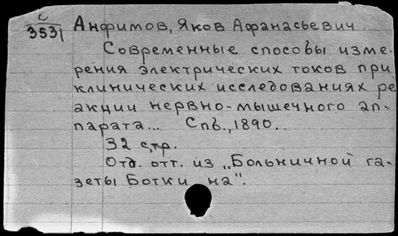 С
3531
Анфимов, Яков Афанасьевич
Современные способы изме-
рения электрических токов при
клинических исследованиях ре-
акции нервно-мышечного ап-
парата... Спб., 1890.
32 стр.
Отд. отт. из „Больничной га-
зеты Боткина".